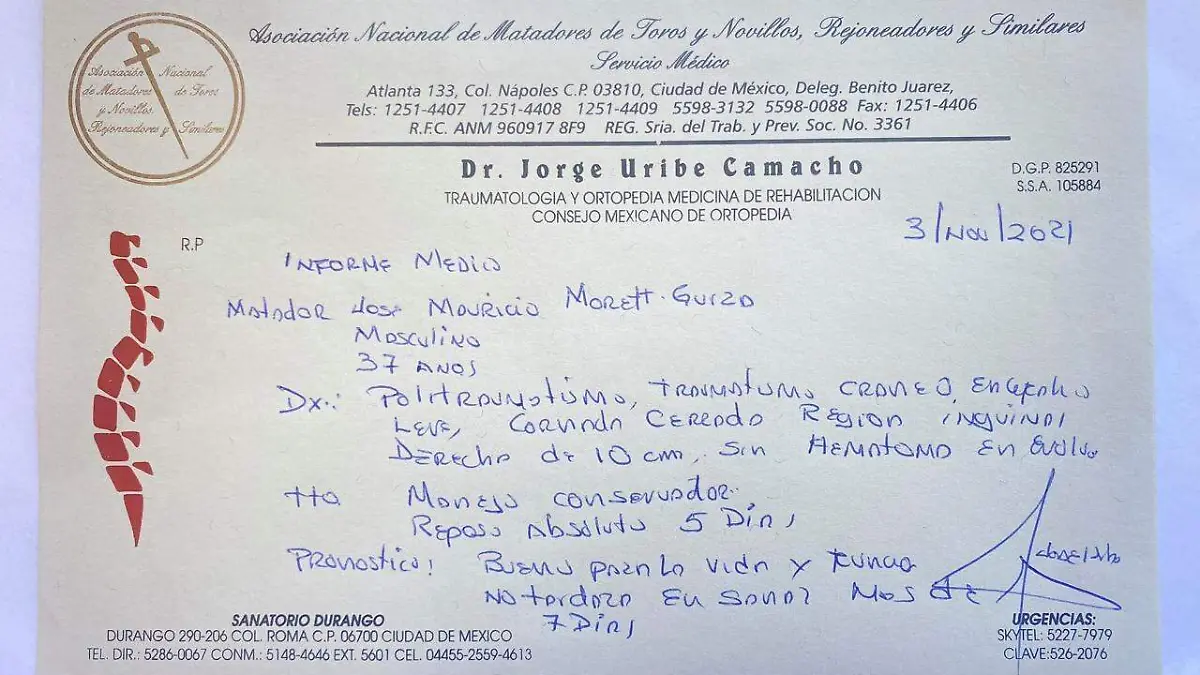 Asociación Nacional de Matadores de Toros y Novillos, Rejoneadores y Similares
Servicio Médico
Asociación Nacional
de Matadores de Toros
y Novillos,
Rejoneadores y Similares
Atlanta 133, Col. Nápoles C.P. 03810, Ciudad de México, Deleg. Benito Juarez,
Tels: 1251-4407 1251-4408 1251-4409 5598-3132 5598-0088 Fax: 1251-4406
R.F.C. ANM 960917 8F9 REG. Sria. del Trab. y Prev. Soc. No. 3361
Dr. Jorge Uribe Camacho
TRAUMATOLOGIA Y ORTOPEDIA MEDICINA DE REHABILITACION
CONSEJO MEXICANO DE ORTOPEDIA
D.G.P. 825291
S.S.A. 105884
3/Nov/2021
R.P
Informe Medico
Matador José Mauricio Morett Guizo
Masculino
37 años
Dx.: Politraumatismo, Traumatismo craneo,
Leve, Cornada Cerrada Region inguinal
Derecha de 10 cm, Sin Hematoma en
Manejo conservador
Reposo Absoluto 5 Dias
Pronostico: Bueno para la vida y
No tardara en sanar Mas de
7 Dias
SANATORIO DURANGO
DURANGO 290-206 COL. ROMA C.P. 06700 CIUDAD DE MEXICO
TEL. DIR.: 5286-0067 CONM.: 5148-4646 EXT. 5601 CEL. 04455-2559-4613
URGENCIAS:
SKYTEL: 5227-7979
CLAVE:526-2076